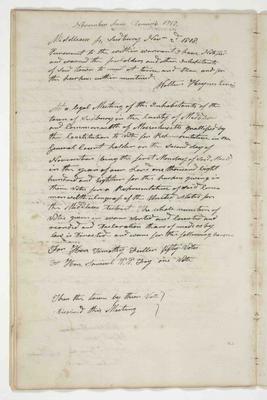 November Town Sudbury 1818
Middlesex ss Sudbury Novr 2d 1818
Pursuant to the within warrant I have Notified
and warned the freeholders and other Inhabitants
of said town to meet at time and place and for
the purpose within mentioned
At a legal Meeting of the Inhabitants of the
town of Sudbury in the County of Middlesex
and Commonwealth of Massachusetts qualified by
the Constitution to vote for Representatives in the
General Court holden on the Second day of
November being the first Monday of said Month
in the year of our Lord one thousand Eight
hundred and Eighteen for the purpose of giving in
their Votes for a Representative of said Commonwealth
in Congress of the United States for
the Middlesex District the whole number of
Votes given in were sorted and counted and
recorded and declaration thereof made as by
law is directed and were for the following persons
For Hon Timothy Fuller fifty Votes
Hon Samuel P.P. Fay one Vote
Then the town by their Vote
dissolved this Meeting